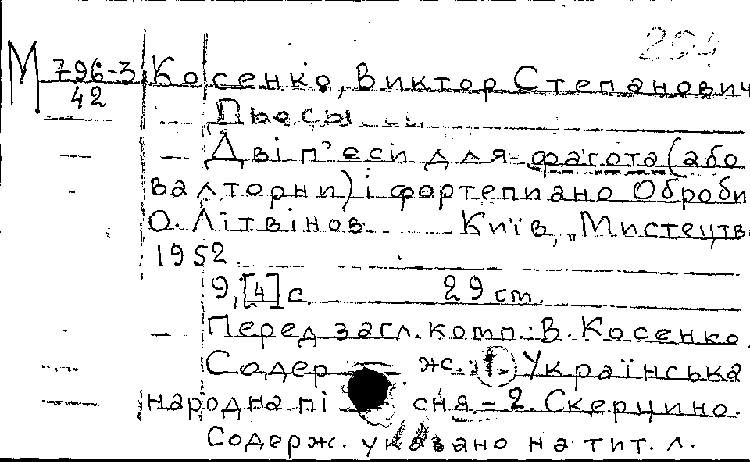 204
М 796-3 Косенко, Виктор Степанович
42
Пьесы
Дві п'єси для фагота (або
валторни) і фортепиано Оброби
О. Літвінов Київ, „Мистецтв
1952
9, [4] с 29 cm.
Перед загл. комп.: В. Косенко.
Содерж. 1. Українська
народна пісня – 2. Скерцино.
Содерж. указано на тит. л.